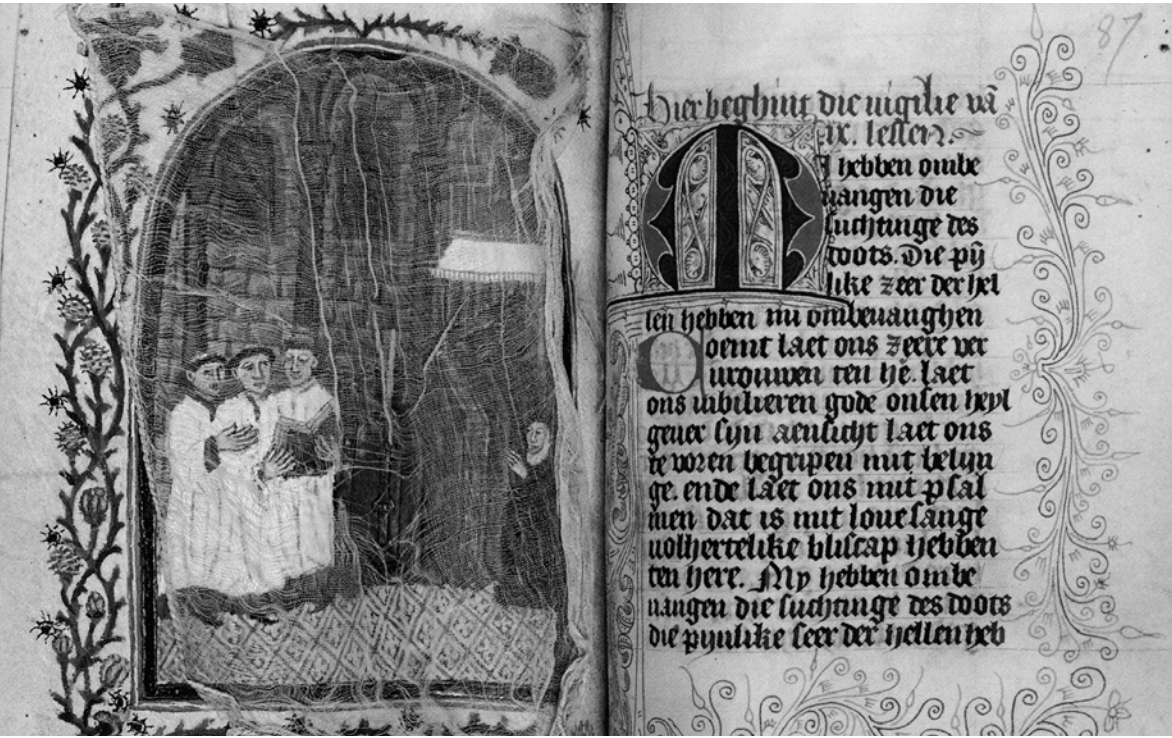 87
Hier beghint die uigilie vā
ix. lessen.
MI hebben ombe
uangen die
suchtinge des
doots. Die pij
like zeer der hel
len hebben mi ombeuanghen
Coemt laet ons zeere ver
urouwen ten hē. laet
ons iubilieren gode onsen heyl
geuer sijn aensicht laet ons
te voren begripen mit belijn
ge. ende laet ons mit psal
men dat is mit louesange
uolhertelike bliscap hebben
ten here. My hebben ombe
uangen die suchtinge des doots
die pijnlike seer der hellen heb